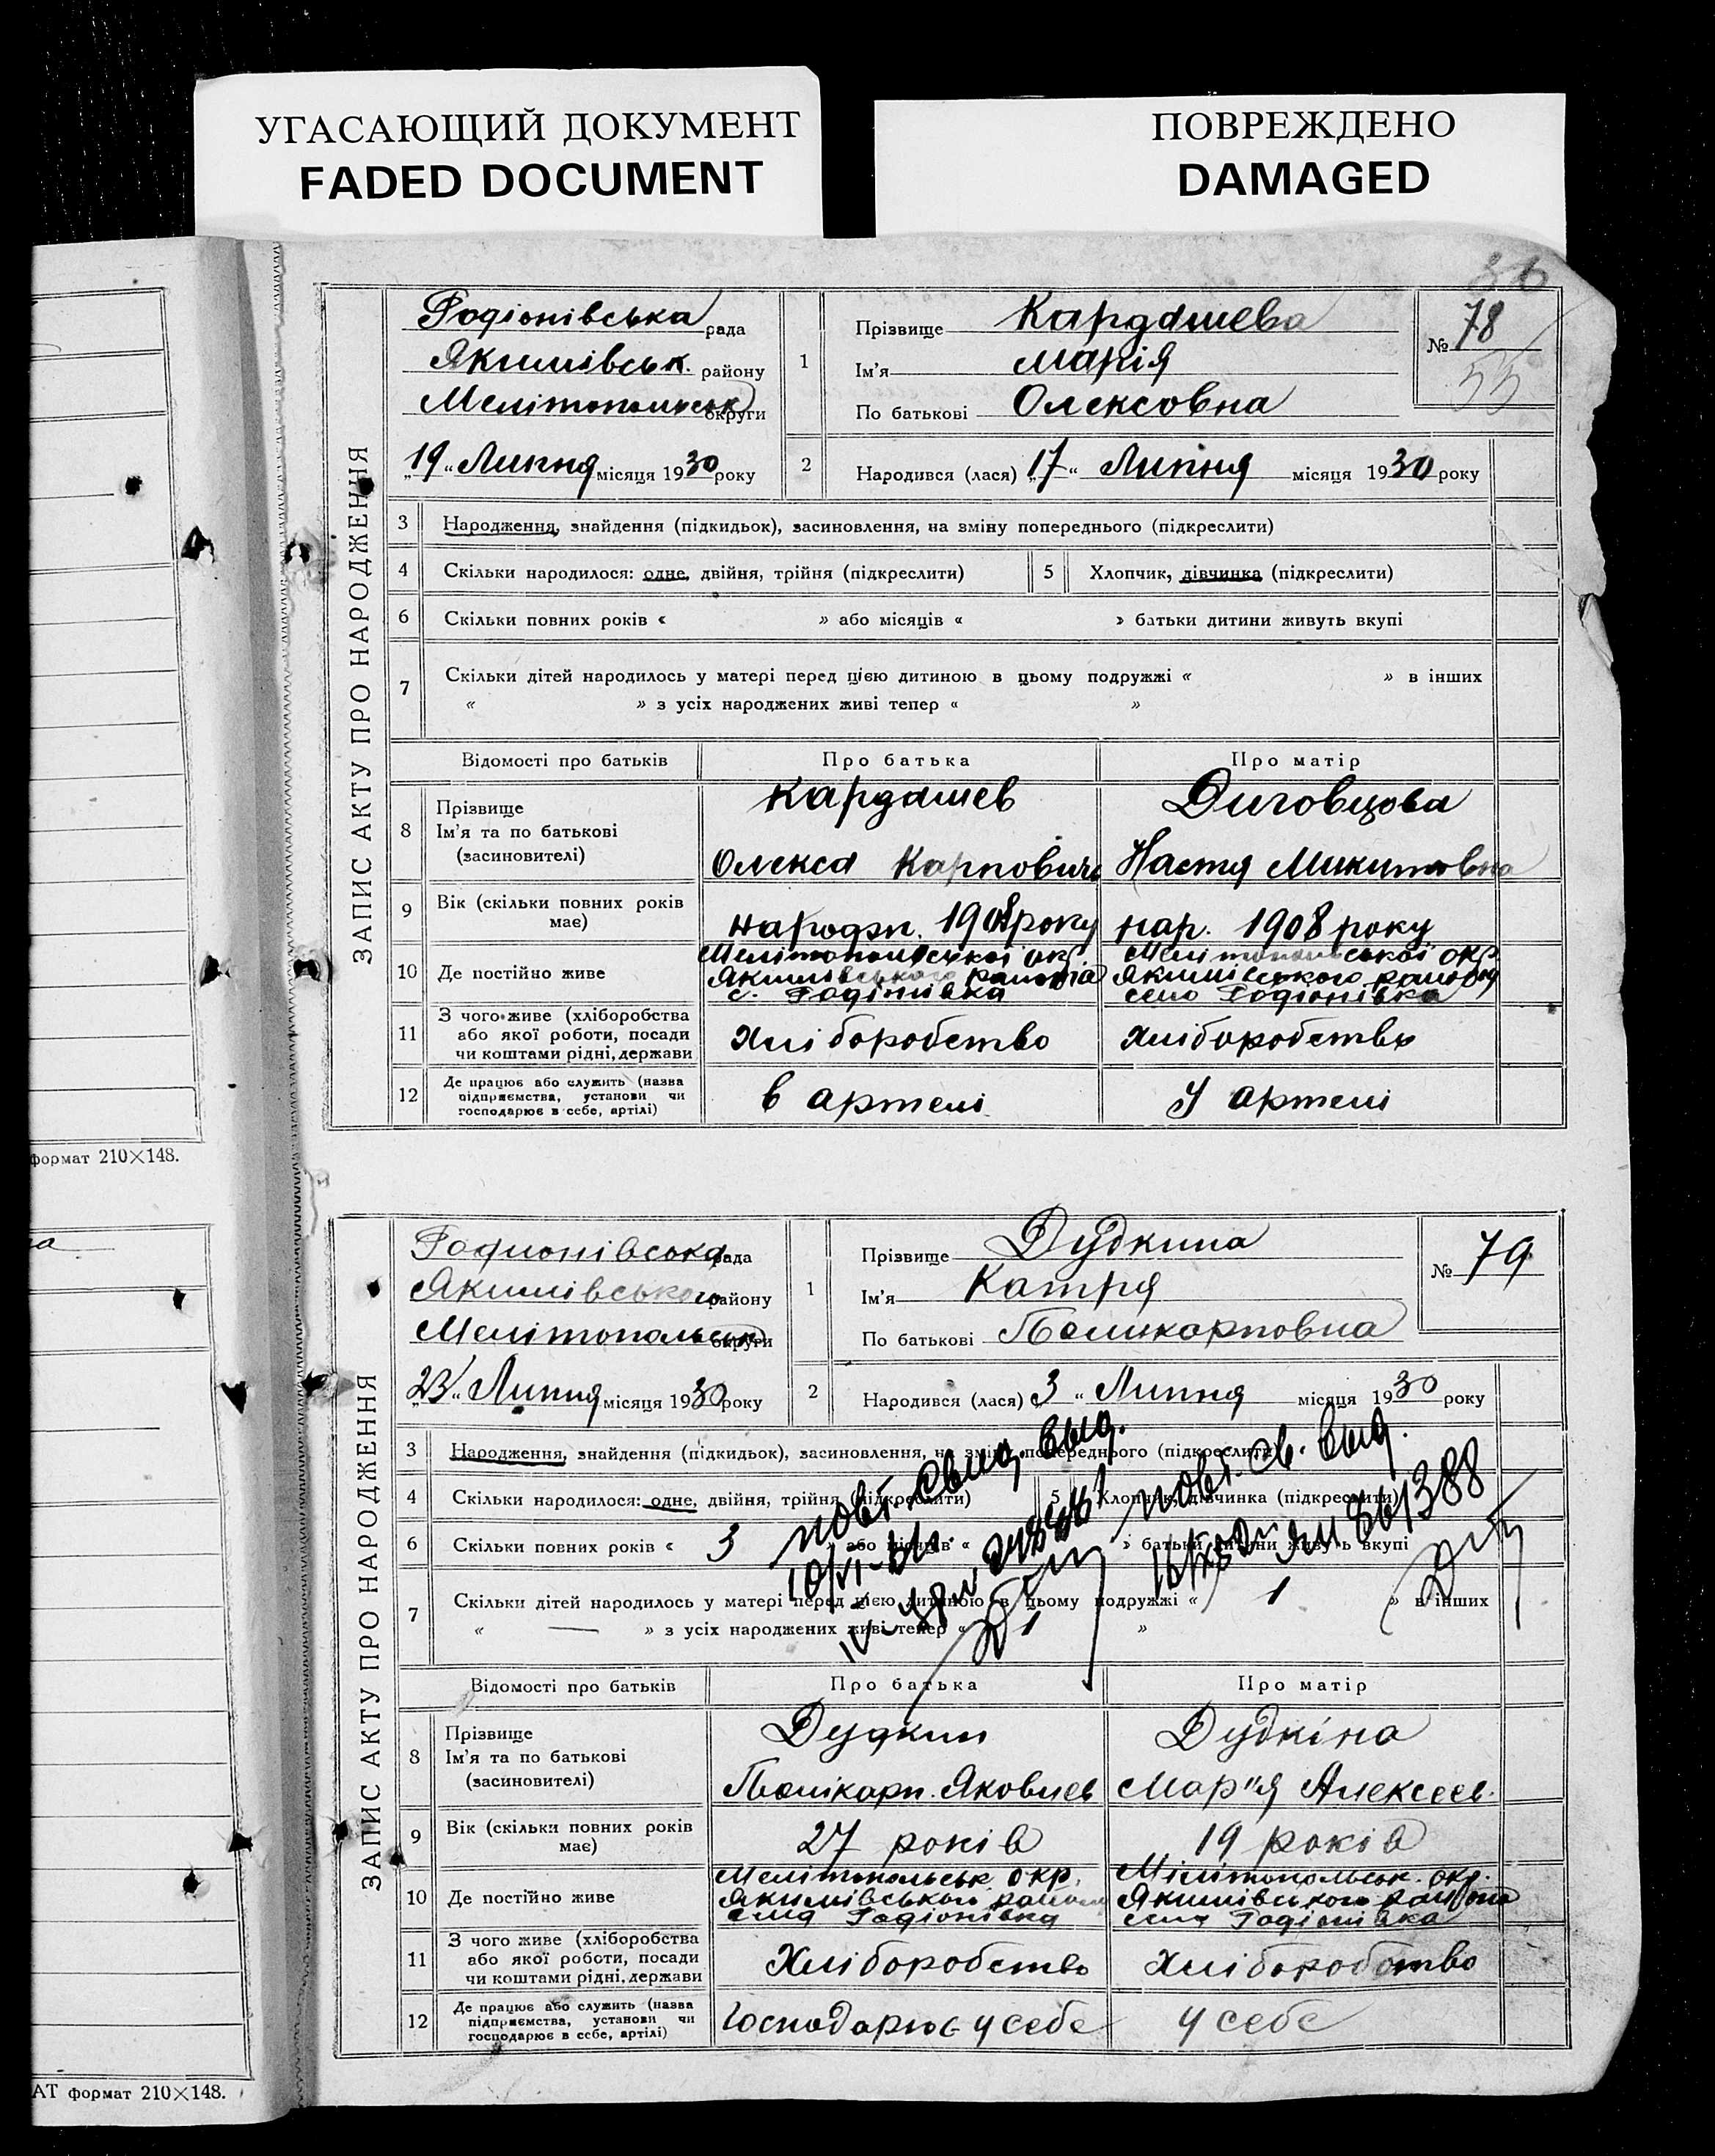 УГАСАЮЩИЙ ДОКУМЕНТ
FADED DOCUMENT
ПОВРЕЖДЕНО
DAMAGED
36
ЗАПИС АКТУ ПРО НАРОДЖЕННЯ
Родіонівська рада
Якимівськ. району
Мелітопольськ округи
1
Прізвище Кардашева
Ім'я Марія
По батькові Олексовна
№ 78
55
„19“ Липня місяця 1930 року
2
Народився (лася) „17“ Липня місяця 1930 року
3 Народження, знайдення (підкидьок), засиновлення, на зміну попереднього (підкреслити)
4 Скільки народилося: одне, двійня, трійня (підкреслити)
5 Хлопчик, дівчинка (підкреслити)
6 Скільки повних років « » або місяців « » батьки дитини живуть вкупі
7 Скільки дітей народилось у матері перед цією дитиною в цьому подружжі « » в інших
« » з усіх народжених живі тепер « »
Відомості про батьків
Про батька
Про матір
8 Прізвище
Ім'я та по батькові
(засиновителі)
Кардашев
Олекса Карпович
Диговцова
Настя Микитовна
9 Вік (скільки повних років
має)
народж. 1908 року
нар. 1908 року
10 Де постійно живе
Мелітопольської окр.
Якимівського района
с. Родіонівка
Мелітопольської окр.
Якимівського района
село Родіонівка
11 З чого живе (хліборобства
або якої роботи, посади
чи коштами рідні, держави
Хліборобство
Хліборобство
12 Де працює або служить (назва
підприємства, установи чи
господарює в себе, артілі)
в артелі
У артелі
формат 210×148.
ЗАПИС АКТУ ПРО НАРОДЖЕННЯ
Родионівська рада
Якимівського району
Мелітопольськ округи
1
Прізвище Дудкина
Ім'я Катря
По батькові Поликарповна
№ 79
„23“ Липня місяця 1930 року
2
Народився (лася) „3“ Липня місяця 1930 року
3 Народження, знайдення (підкидьок), засиновлення, на зміну попереднього (підкреслити)
4 Скільки народилося: одне, двійня, трійня (підкреслити)
5 Хлопчик, дівчинка (підкреслити)
6 Скільки повних років « 3 » або місяців « » батьки дитини живуть вкупі
7 Скільки дітей народилось у матері перед цією дитиною в цьому подружжі « 1 » в інших
« — » з усіх народжених живі тепер « 1 »
повт. свид. выд.
повт. св. выд.
861388
Відомості про батьків
Про батька
Про матір
8 Прізвище
Ім'я та по батькові
(засиновителі)
Дудкин
Полікарп. Яковлев
Дудкіна
Мар"я Алексеев.
9 Вік (скільки повних років
має)
27 років
19 років
10 Де постійно живе
Мелітопольськ окр.
Якимівського района
села Родіонівка
Мілітопольськ. окр.
Якимівського района
села Родіонівка
11 З чого живе (хліборобства
або якої роботи, посади
чи коштами рідні, держави
Хліборобство
Хліборобство
12 Де працює або служить (назва
підприємства, установи чи
господарює в себе, артілі)
Господарює у себе
у себе
АТ формат 210×148.